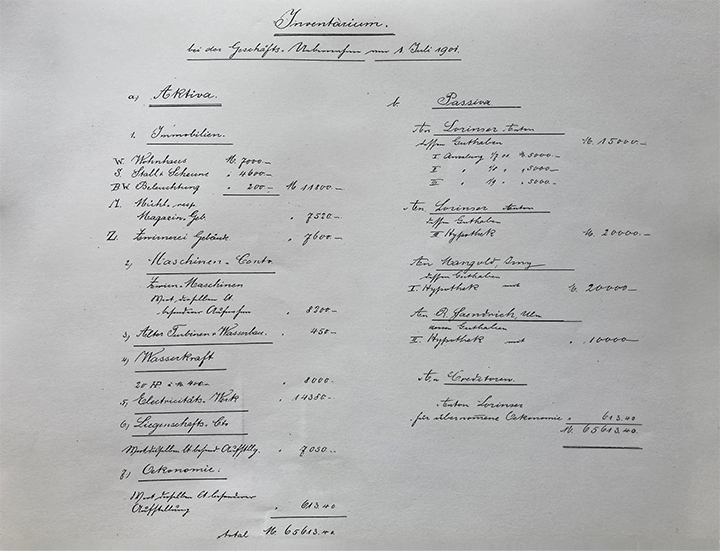 Inventarium.
bei der Geschäfts-Uebernahme am 1. Juli 1901.
a) Aktiva.
1. Immobilien.
W. Wohnhaus M. 7000.-
S. Stall & Scheune " 4600.-
B.W. Beleuchtung " 200.- M 11800.-
M.
Magazin Geb. " 7520.-
Z. Zwirnerei Gebäude " 7600.-
2) Maschinen-Conto
Zwirn-Maschinen
Wert derselben lt.
besonderer Aufnahme " 8200.-
3) Alter Turbinen & Wasserbau. " 450.-
4) Wasserkraft
20 HP à M 400.- " 8000.-
5) Electricitäts-Werk " 14350.-
6) Liegenschafts-Cto
Wert derselben lt. besond. Aufstllg. " 7050.-
7) Oekonomie.
Wert derselben lt. besonderer
Aufstellung " 613.40
total M. 65613.40
b. Passiva
An Lorinser Anton
dessen Guthaben M. 15000.-
I 5000.-
II " " 5000.-
III " " 5000.-
An Lorinser Anton
dessen Guthaben
III Hypothek M. 20000.-
An Mangold,
dessen Guthaben
I. Hypothek mit M. 20000.-
An Ulm
Guthaben
II Hypothek mit " 10000.-
An Creditoren.
Anton Lorinser
für übernomene Oekonomie " 613.40
M. 65613.40